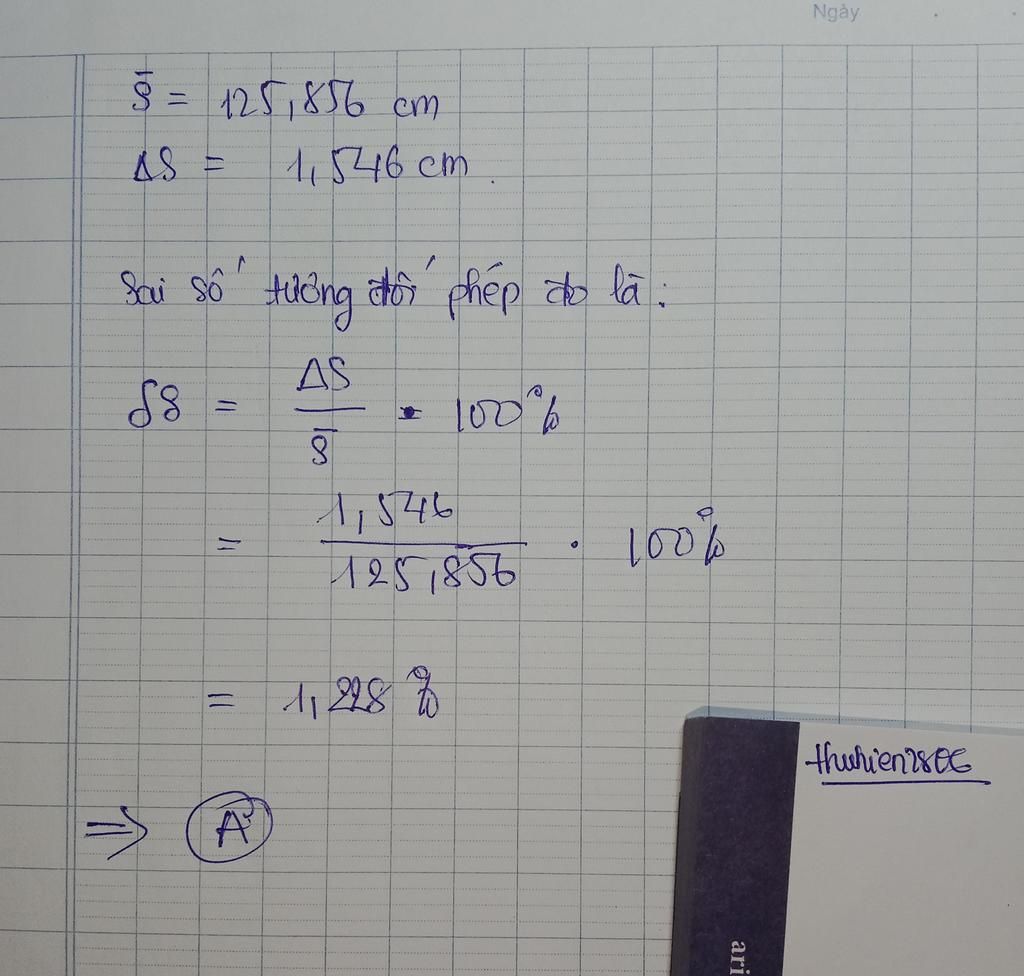 Ngày
S̄ = 125,856 cm
ΔS = 1,546 cm.
Sai số tương đối phép đo là:
δS = ΔS / S̄ · 100%
= 1,546 / 125,856 · 100%
= 1,228 %
⇒ A
thuhien2806
ari